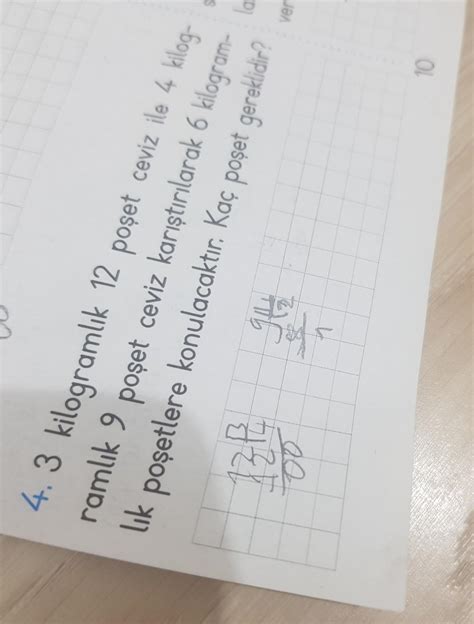 4. 3 kilogramlık 12 poşet ceviz ile 4 kilog-
ramlık 9 poşet ceviz karıştırılarak 6 kilogram-
lık poşetlere konulacaktır. Kaç poşet gereklidir?
12 3
12 4
00
9 4
8 2
1
10
ver